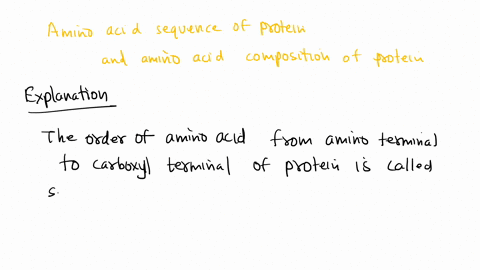 Amino acid sequence of protein
and amino acid composition of protein
Explanation
The order of amino acid from amino terminal
to carboxyl terminal of protein is called
s